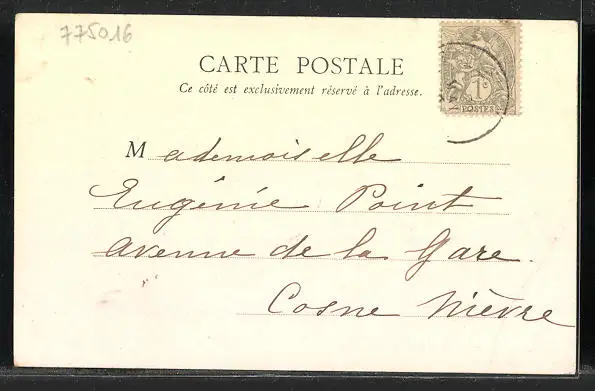 775016
CARTE POSTALE
Ce côté est exclusivement réservé à l'adresse.
1c
POSTES
Mademoiselle
Eugénie Point
Avenue de la Gare.
Cosne Nièvre